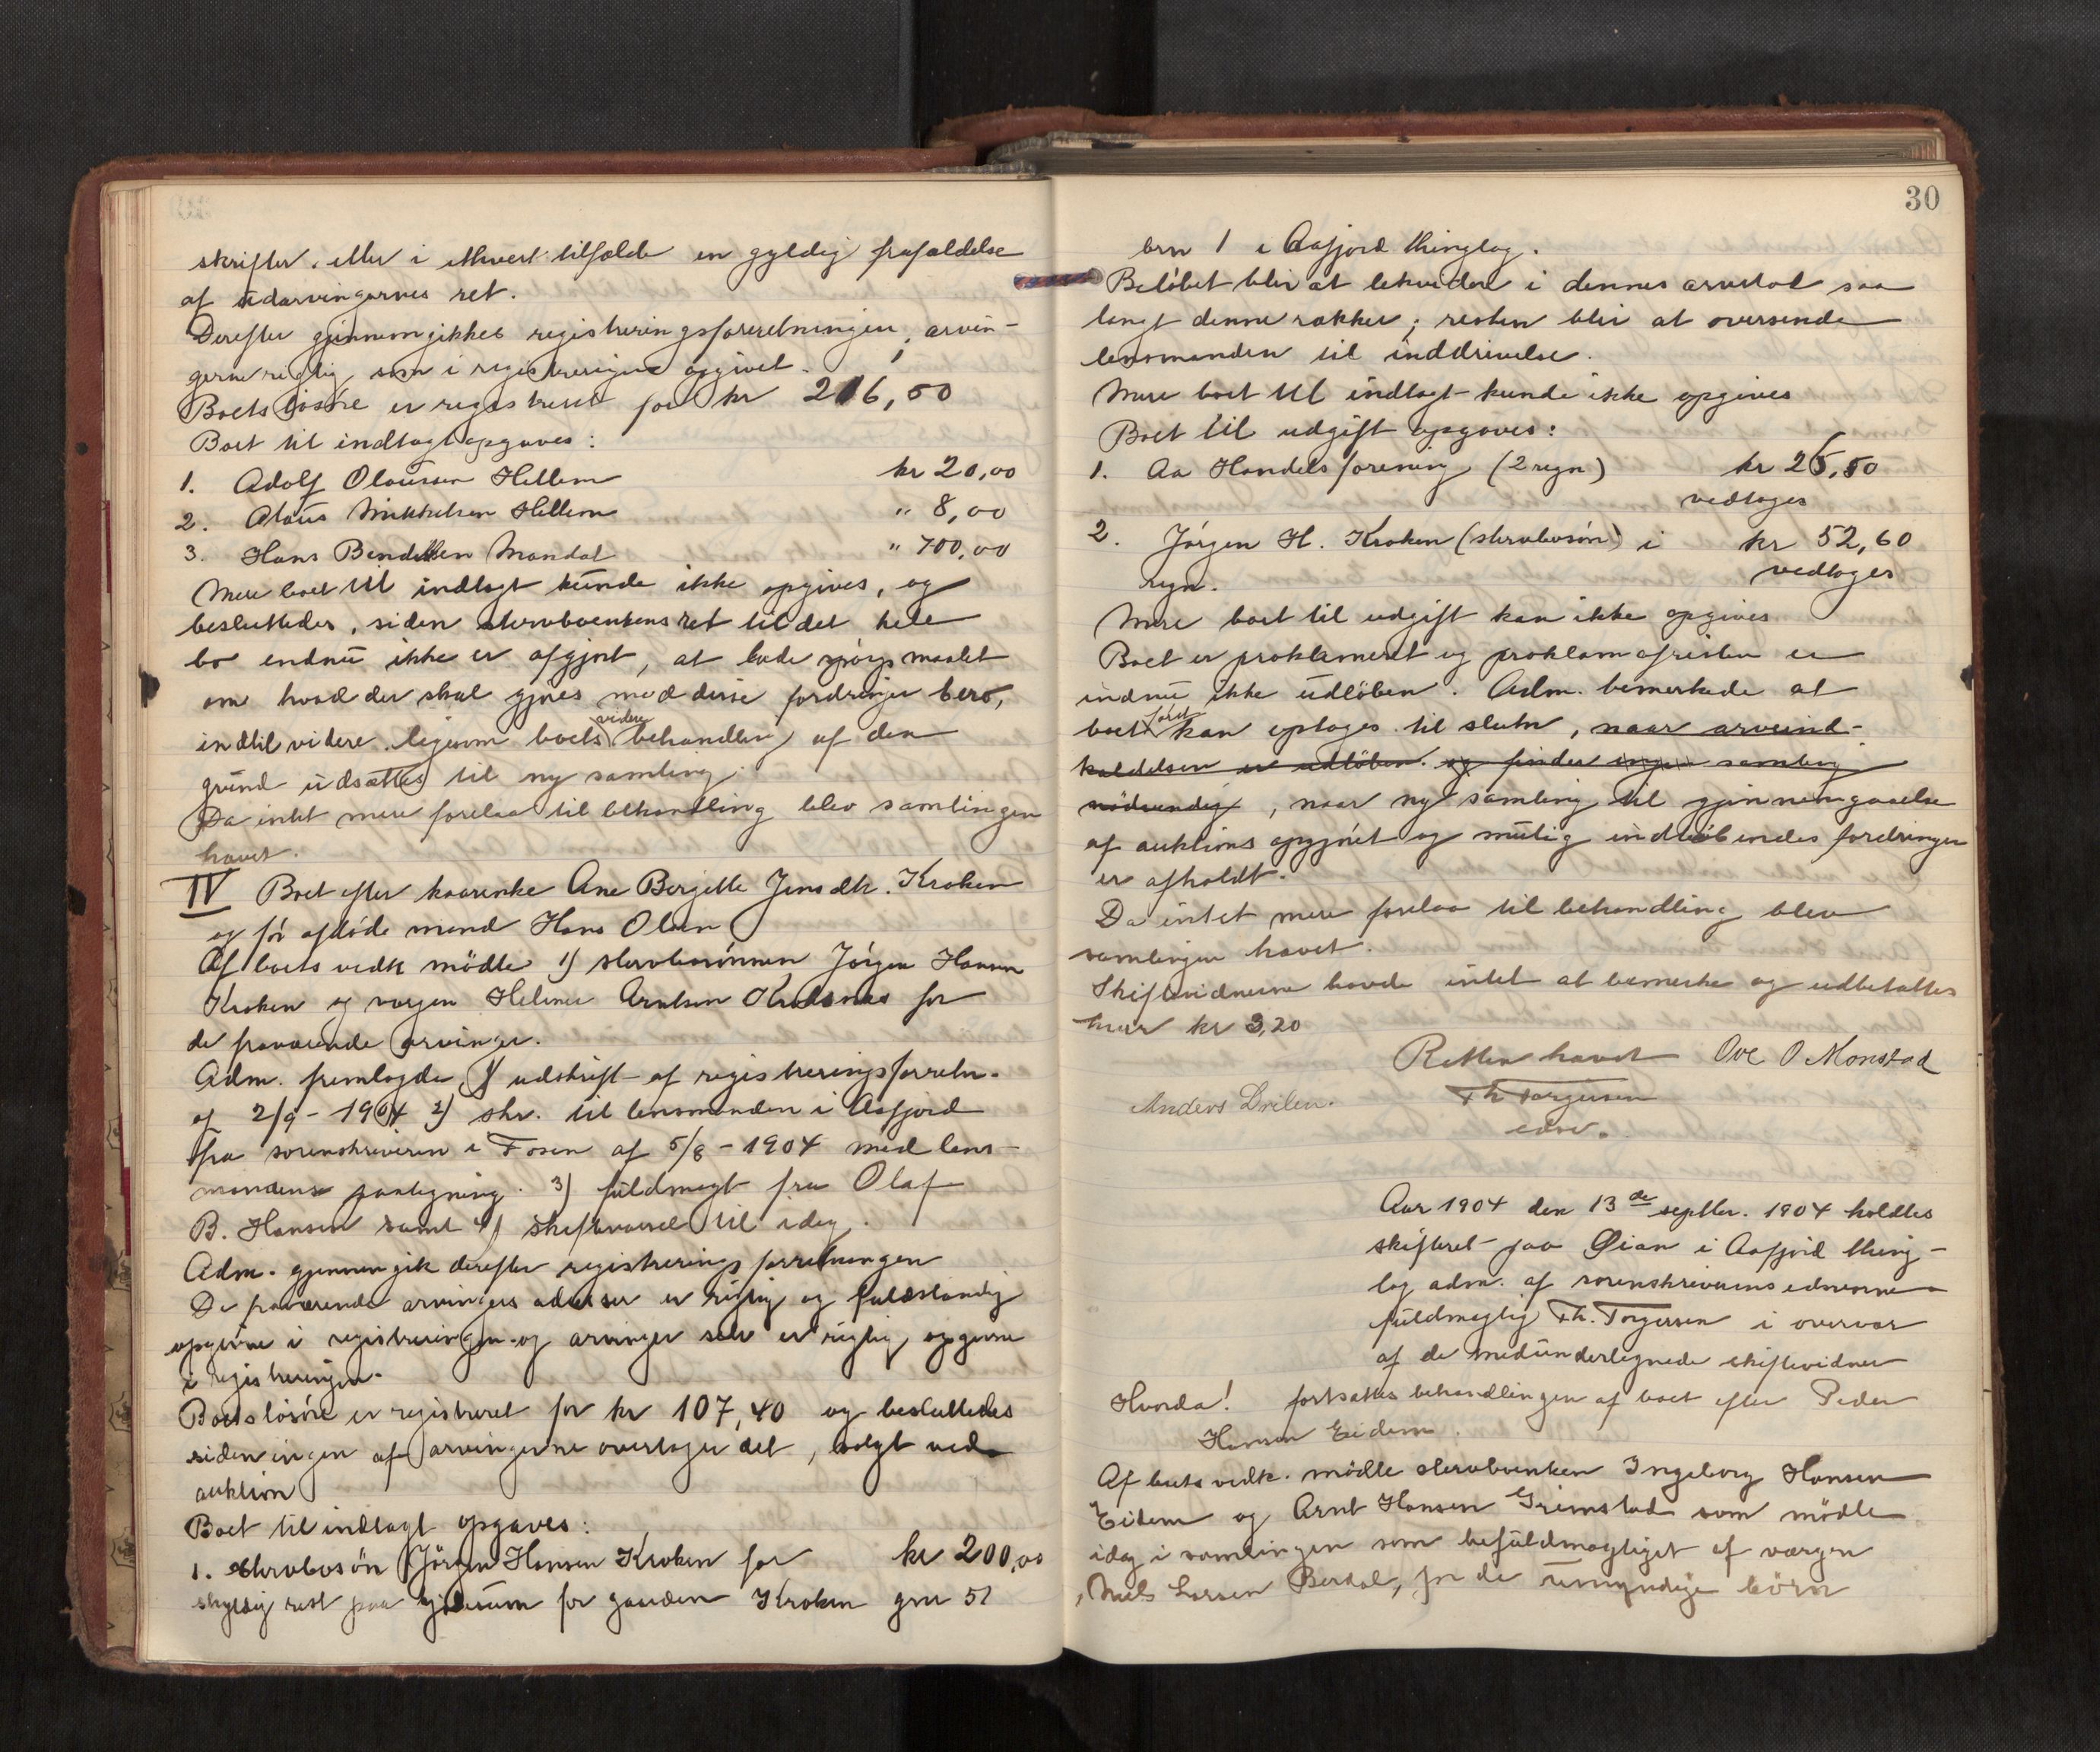 skrifter, eller i ethvert tilfælde en gyldig frafaldelse
af udarvingernes ret.
Derefter gjennemgikkes registreringsforretningen, arvin-
gerne rigtig som i registreringen opgivet.
Boets løsøre er registreret for kr 216,50
Boet til indtægt opgaves:
1. Adolf Olaussen Hellem kr 20,00
2. Olaus Mikkelsen Hellem " 8,00
3. Hans Bendiksen Mandal " 700,00
Mere boet til indtægt kunde ikke opgives, og
besluttedes, siden stervboenkens ret til det hele
bo endnu ikke er afgjort, at lade spørgsmaalet
om hvad der skal gjøres med disse fordringer bero,
indtil videre ligesom boets videre behandling af den
grund udsættes til ny samling.
Da intet mere forelaa til behandling blev samlingen
hævet.
IV Boet efter kaarenke Ane Bergitte Jensdtr. Kroken
og før afdøde mand Hans Olsen
Af boets vedk mødte 1) stervbosønnen Jørgen Hansen
Kroken og værgen Helmer Arntsen for
de fraværende arvinger.
Adm. fremlagde 1) udskrift af registreringsforretn.
af 2/9 - 1904 2) skr. til lensmanden i Aafjord
fra sorenskriveren i Fosen af 5/8 - 1904 med lens-
mandens paategning. 3) fuldmagt fra Olaf
B. Hansen samt 4) skiftevarsel til idag.
Adm. gjennemgik derefter registreringsforretningen
De fraværende arvingers adresser er rigtig og fuldstændig
opgivne i registreringen og arvinger selv er rigtig opgivne
i registreringen.
Boets løsøre er registreret for kr 107,40 og besluttedes
siden ingen af arvingerne overtager det, solgt ved
auktion
Boet til indtægt opgaves:
1. Stervbosøn Jørgen Hansen Kroken for kr 200,00
skyldig rest paa kjøbesum for gaarden Kroken gnr 51
30
brn 1 i Aafjord thinglag.
Beløbet blir at lekvidere i dennes arvelod saa
langt denne rækker; resten blir at oversende
lensmanden til inddrivelse.
Mere boet til indtægt kunde ikke opgives
Boet til udgift opgaves:
1. Aa Handelsforening (2 regn) kr 25,50
vedtages
2. Jørgen H. Kroken (stervbosøn) i kr 52,60
regn. vedtages
Mere boet til udgift kan ikke opgives
Boet er proklameret og proklamafristen er
endnu ikke udløben. Adm. bemerkede at
boet først kan optages til slutn, naar arveind-
kaldelsen er udløben og finder ingen samling
nødvendig, naar ny samling til gjennemgaaelse
af auktions opgjøret og mulig indløbendes fordringer
er afholdt.
Da intet mere forelaa til behandling blev
samlingen hævet.
Skiftevidnerne havde intet at bemerke og udbetaltes
hver kr 3,20
Retten hævet Ove O Monstad
Anders Drilen. Th Torgersen
edsv.
Aar 1904 den 13de septbr. 1904 holdtes
skifteret paa Øian i Aafjord thing-
lag adm. af sorenskriverens edsvorne
fuldmægtig Th. Torgersen i overvær
af de medundertegnede skiftevidner
Hvorda! fortsattes behandlingen af boet efter Peder
Hansen Eidem.
Af boets vedk. mødte stervboenken Ingeborg Hansen
Eidem og Arnt Hansen Grimstad som mødte
idag i samlingen som befuldmægtiget af værgen
, Nils Larsen Berdal, for de umyndige børn